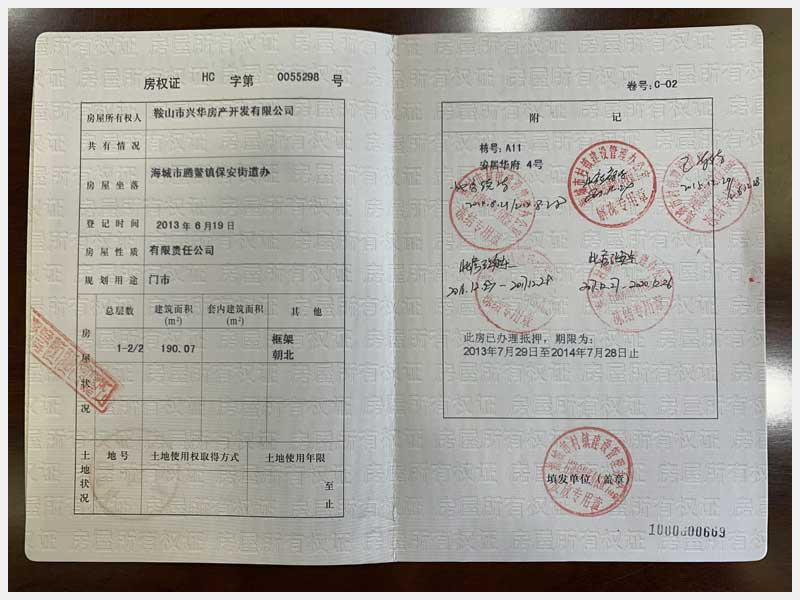 房权证 HC 字第 0055298 号
房屋所有权人 鞍山市兴华房产开发有限公司
共有情况
房屋坐落 海城市腾鳌镇保安街道办
登记时间 2013 年 6月19 日
房屋性质 有限责任公司
规划用途 门市
房屋状况
总层数 建筑面积 (m²) 套内建筑面积 (m²) 其他
1-2/2 190.07 框架
朝北
土地状况
地号 土地使用权取得方式 土地使用年限
至
止
卷号:C-02
附记
栋号: A11
安居华府 4号
2017.12.27-2020.12.26
此房已办理抵押,期限为:
2013年7月29日至2014年7月28日止
填发单位(盖章)
1000600669